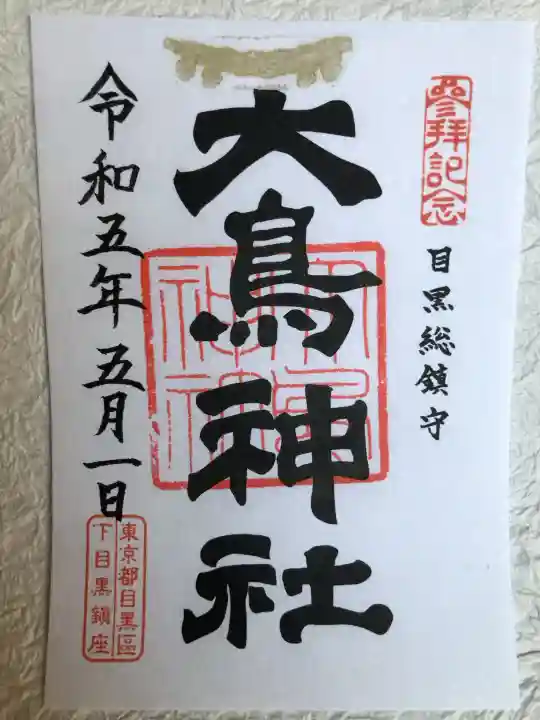 參拜記念
目黒総鎮守
大鳥神社
令和五年五月一日
東京都目黑區
下目黒鎭座